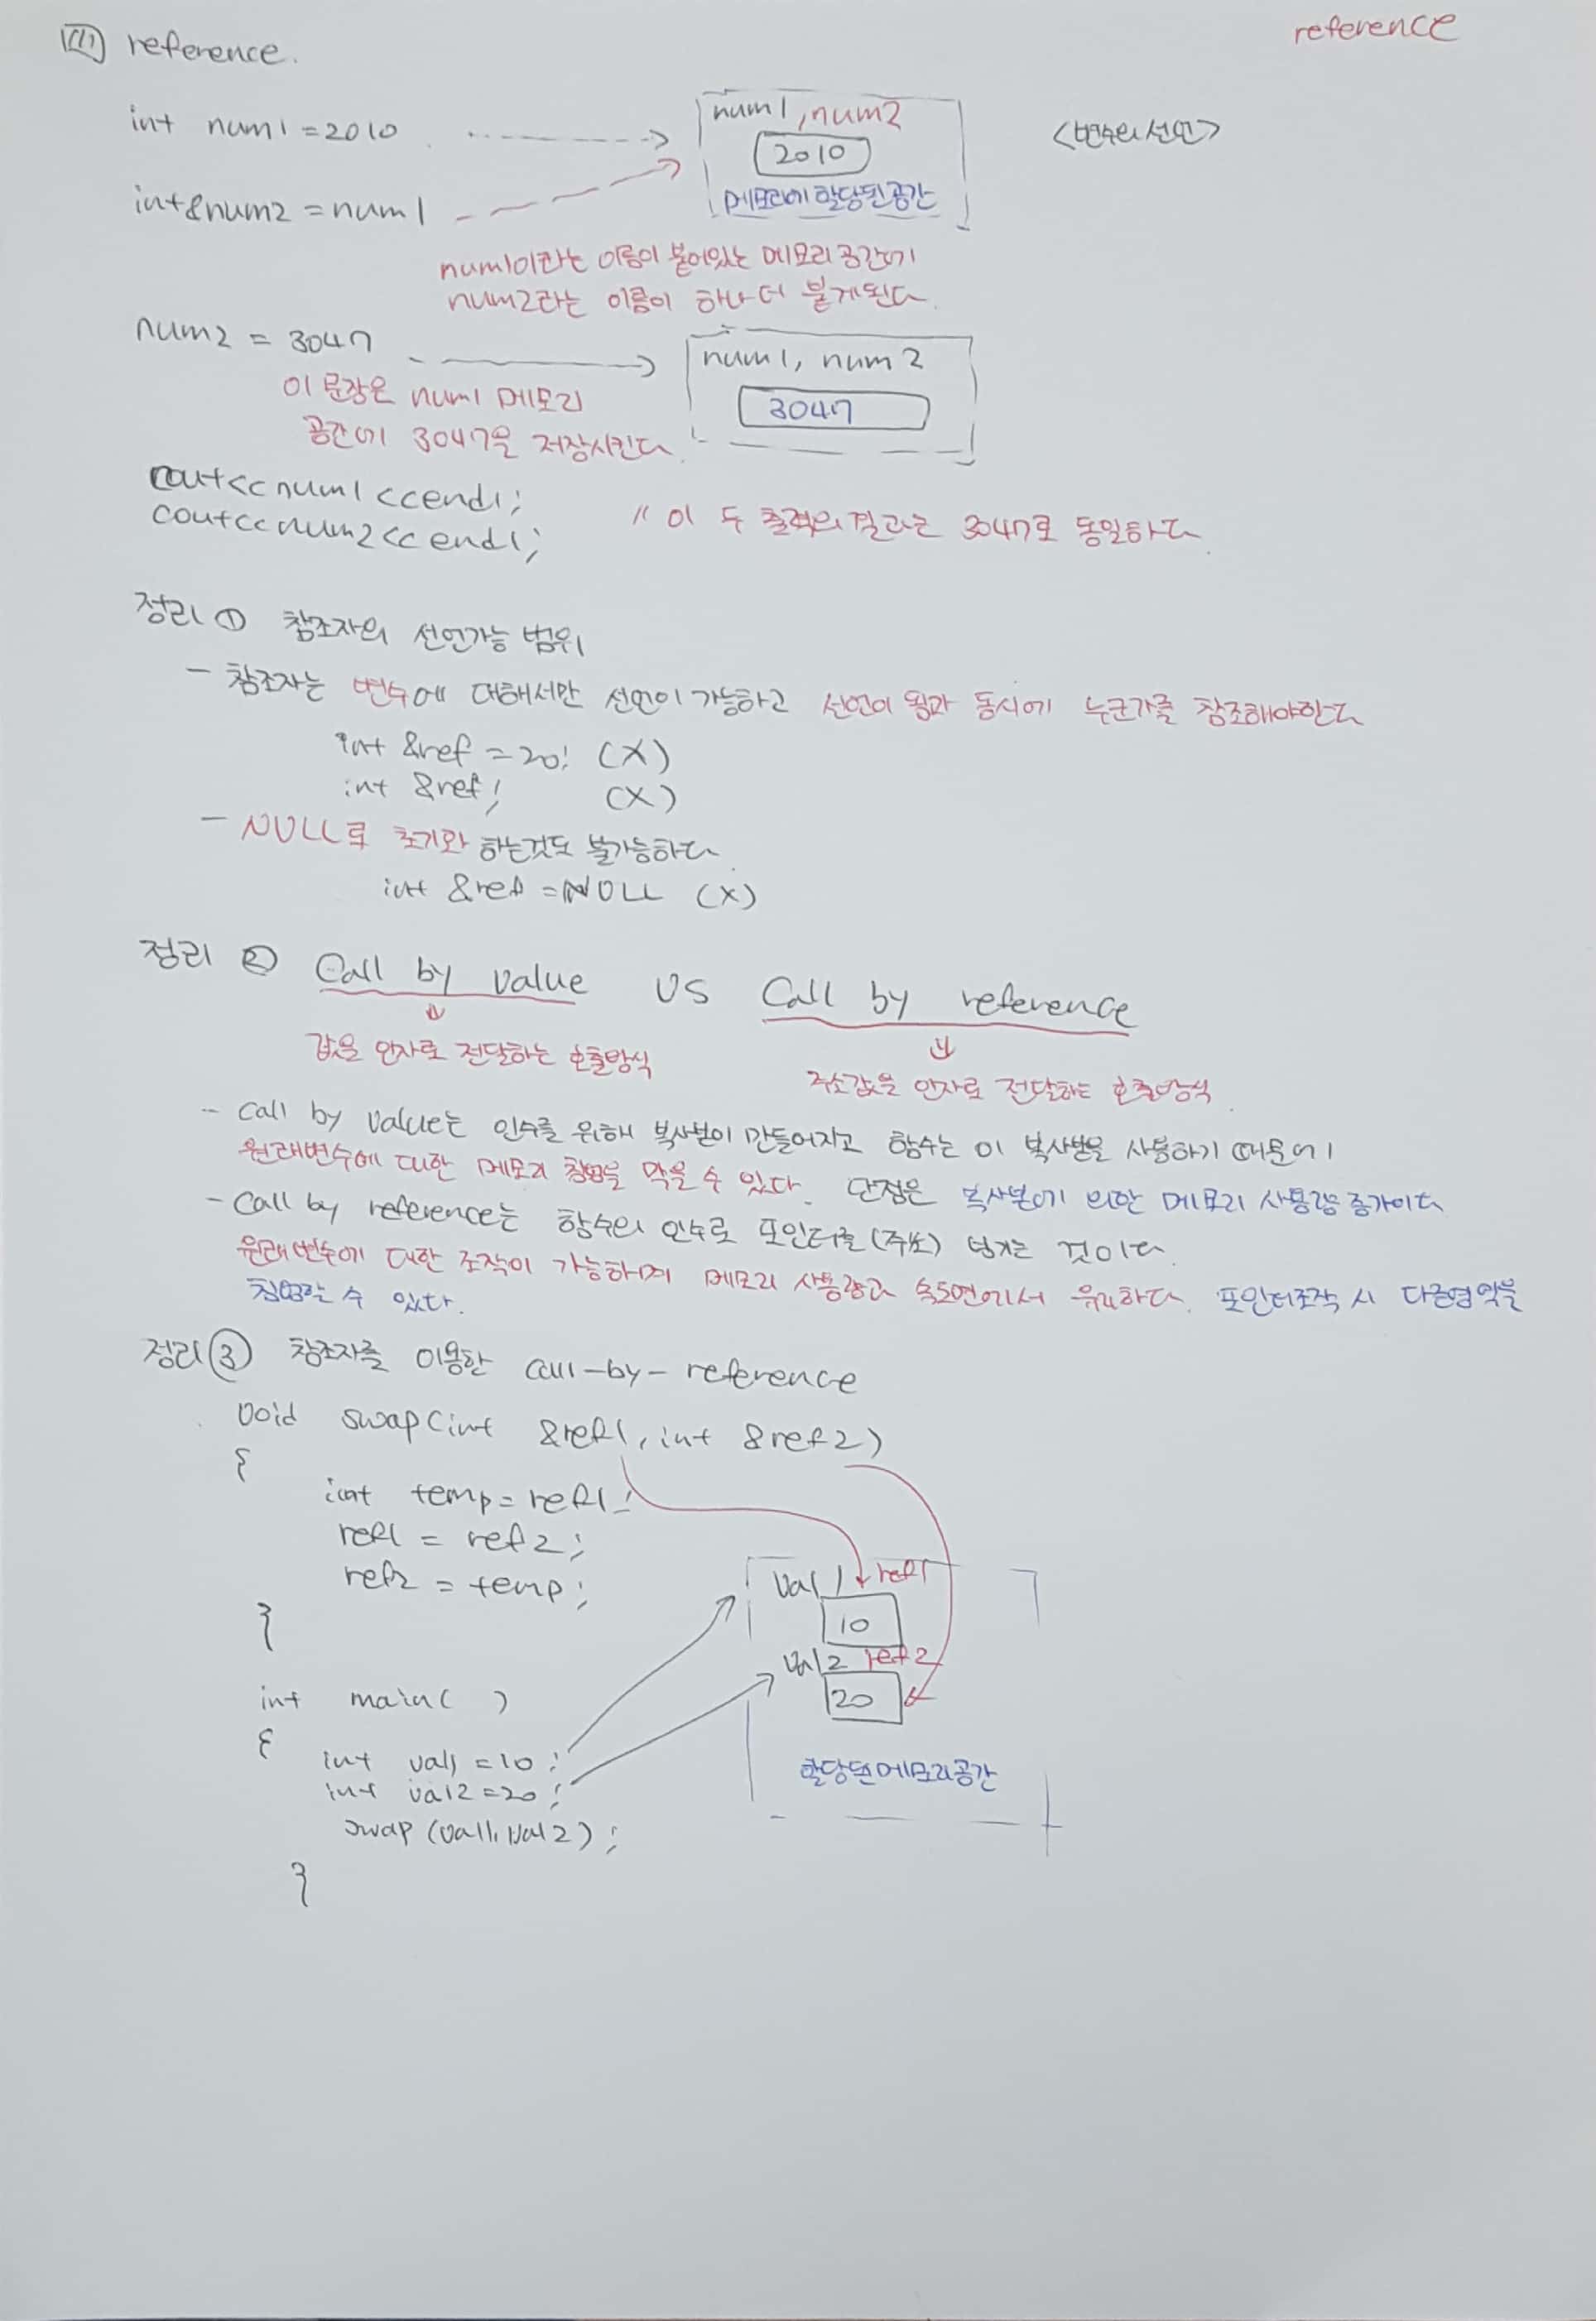 reference
reference.
int num1 = 2010
num1, num2
2010
메모리에 할당된 공간
<변수의 선언>
int &num2 = num1
num1이라는 이름이 붙어있는 메모리 공간에
num2라는 이름이 하나 더 붙게된다.
num2 = 3047
num1, num2
3047
이 문장은 num1 메모리
공간에 3047을 저장시킨다.
cout<<num1<<endl;
cout<<num2<<endl;
// 이 두 출력의 결과는 3047로 동일하다.
정리 ① 참조자의 선언가능 범위
- 참조자는 변수에 대해서만 선언이 가능하고 선언이 됨과 동시에 누군가를 참조해야한다
int &ref = 20; (X)
int &ref; (X)
- NULL로 초기화 하는것도 불가능하다.
int &ref = NULL (X)
정리 ② Call by value VS Call by reference
값을 인자로 전달하는 호출방식
주소값을 인자로 전달하는 호출방식.
- Call by value는 인수를 위해 복사본이 만들어지고 함수는 이 복사본을 사용하기 때문에
원래변수에 대한 메모리 침범을 막을 수 있다. 단점은 복사본에 의한 메모리 사용량 증가이다
- Call by reference는 함수의 인수로 포인터를 (주소) 넘기는 것이다.
원래변수에 대한 조작이 가능하며 메모리 사용량과 속도면에서 유리하다. 포인터조작 시 다른영역을
침범할 수 있다.
정리 ③ 참조자를 이용한 call-by-reference
void swap(int &ref1, int &ref2)
{
int temp = ref1;
ref1 = ref2;
ref2 = temp;
}
val1 ref1
10
val2 ref2
20
할당된 메모리공간
int main( )
{
int val1 = 10;
int val2 = 20;
swap (val1, val2);
}